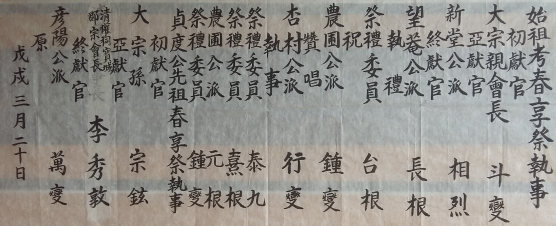 始祖考春享祭執事
初獻官
大宗親會長 斗燮
亞獻官
新堂公派 相烈
終獻官
望菴公派 長根
執禮
祭禮委員 台根
祝
農圃公派 鍾燮
贊唱
杏村公派 行燮
執事
祭禮委員 泰九
祭禮委員 熹根
農圃公派 元根
祭禮委員 鍾燮
貞度公先祖春享祭執事
初獻官
大宗孫 宗鉉
亞獻官
郎宗會長 李秀敦
終獻官
彦陽公派 萬燮
原
戊戌 三月二十日